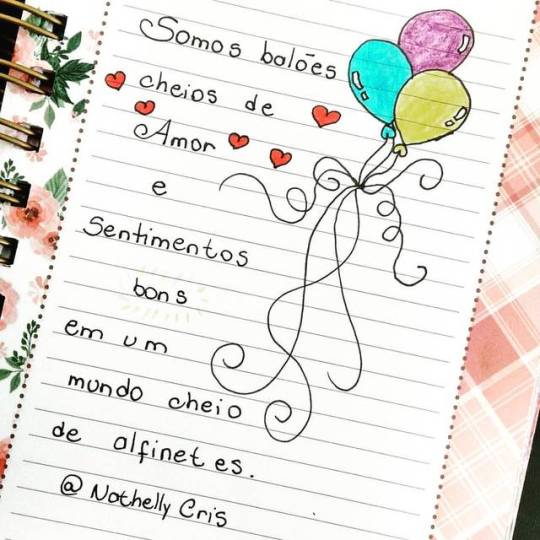 Somos balões
cheios de
Amor
e
Sentimentos
bons
em um
mundo cheio
de alfinetes.
@ Nathelly Cris